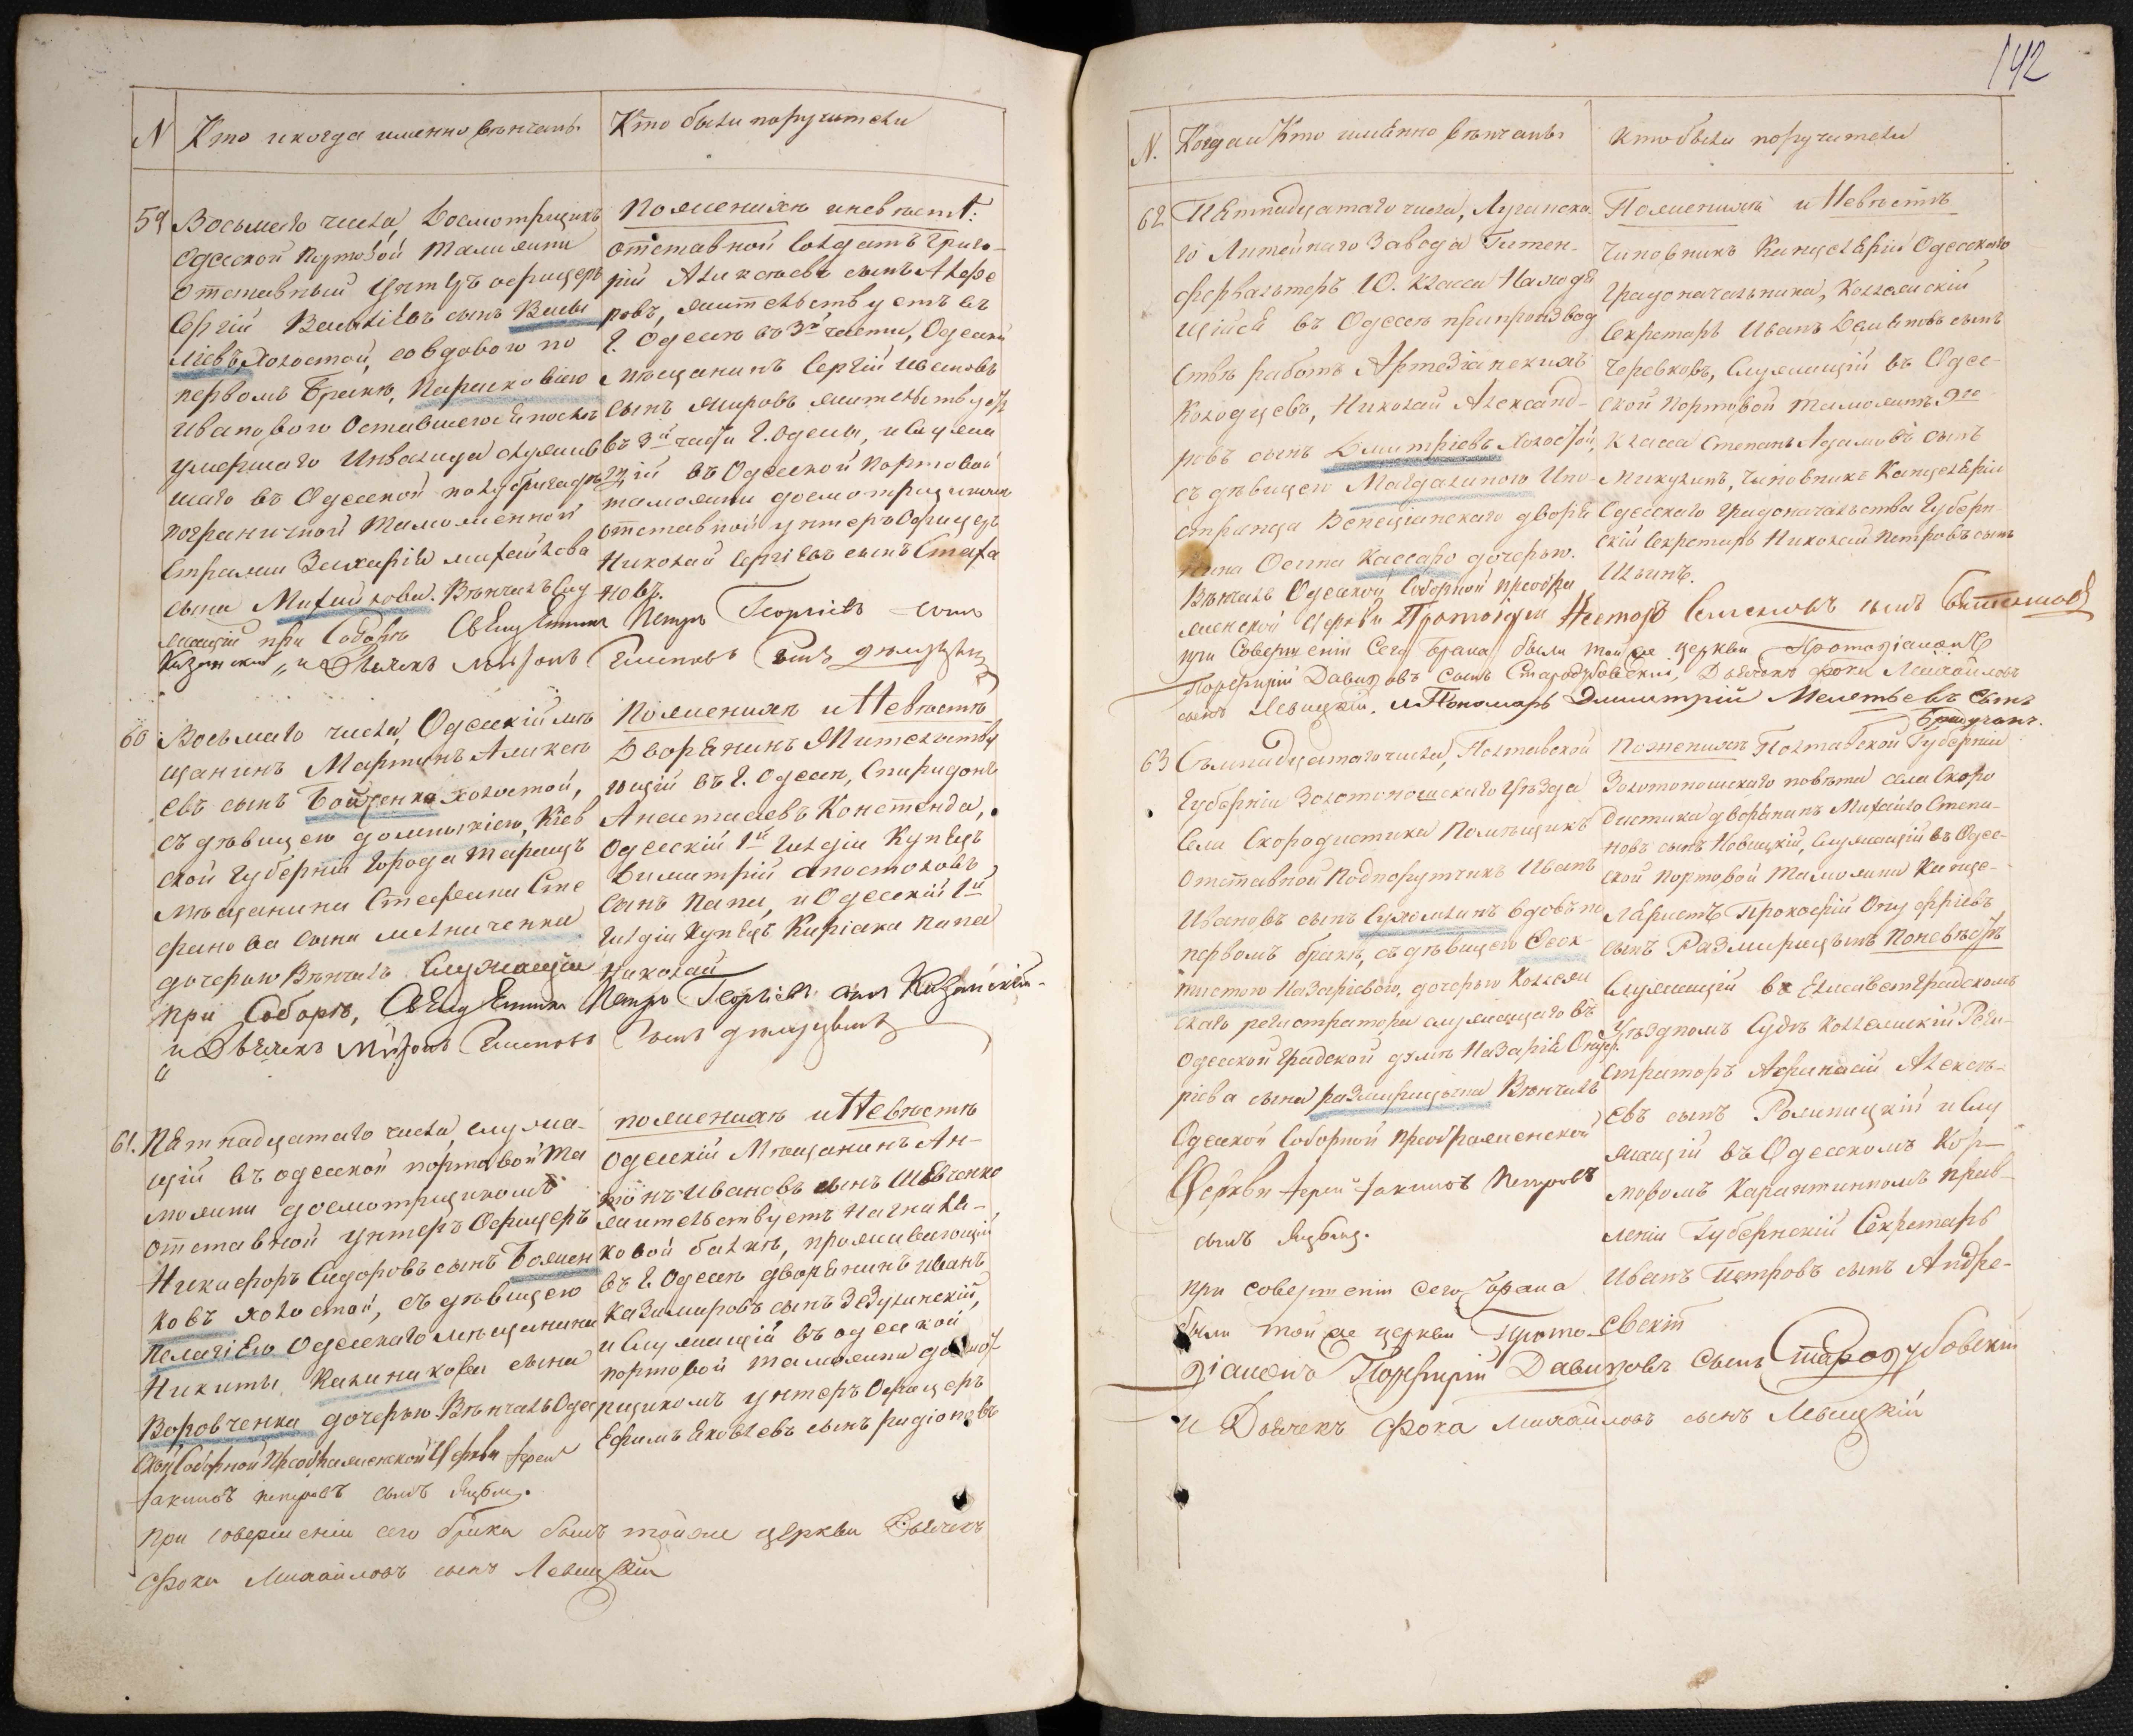 N
Кто и когда именно венчаны.
Кто были поручители
59
Восьмаго числа, Досмотрщикъ
Одесской Портовой Таможни
Отставный Унтеръ офицеръ
Сергій Васильевъ сынъ Василь
іевъ, Холостой, со вдовою по
первомъ бракѣ, Параскевіею
Ивановою Оставшеюся после
умершаго Инвалида служив
шаго въ Одесской полубригадѣ
пограничной Таможенной
Стражи Захарія Михайлова
сына Михайлова. Вѣнчалъ Слу
жащій при Соборѣ Священникъ Петръ Георгіевъ сынъ
Казанскій, и Дьячекъ
По женихѣ и невѣстѣ:
отставной Солдатъ Григо-
рій Алексѣевъ сынъ Алфе
ровъ, жительствуетъ въ
Г. Одессѣ въ 3й части, Одесскій
мѣщанинъ Сергій Ивановъ
Сынъ Жировъ жительствуетъ
въ 3й части Г. Одессы, и Служа
щій въ Одесской Портовой
таможни досмотрщикомъ
отставной унтеръ Офицеръ
Николай Сергіевъ сынъ Стаха
новъ.
60
Восьмаго числа, Одесскій мѣ
щанинъ Мартинъ Алексѣ
евъ сынъ Бойченко холостой,
съ дѣвицею Домникіею, Кіев
ской Губерніи Города Таращѣ
мѣщанина Стефана Сте
фанова сына Мельниченка
дочерью Вѣнчалъ Служащій
при Соборѣ, Священникъ Петръ Георгіевъ сынъ Казанскій
и Дьячекъ
По женихѣ и Невѣстѣ
Дворянинъ Жительству
ющій въ Г. Одессѣ, Спиридонъ
Анастасіевъ Констанда,
Одесскій 1й Гильдіи Купецъ
Димитрій Апостоловъ
Сынъ Папа, и Одесскій 1й
Гильдіи Купецъ Киріака Папа
Николай
61.
Пятнадцатаго числа, служа-
щій въ одесской портовой Та
можни досмотрщикомъ
отставной унтеръ Офицеръ
Никифоръ Сидоровъ сынъ Божен
ковъ холостой, съ дѣвицею
Пелагіею Одесскаго мѣщанина
Никиты Калиникова сына
Воровченка дочерью. Вѣнчалъ Одес
ской Соборной Преображенской Церкви Іерей
Іакимъ Петровъ сынъ
При совершеніи сего брака былъ тойже церкви Дьячекъ
Фока Михайловъ сынъ Левицкій
по женихѣ и Невѣстѣ
Одесскій Мѣщанинъ Ан-
тонъ Ивановъ сынъ Шевченко
жительствуетъ на
ковой балкѣ, проживающій
въ Г. Одессѣ дворянинъ Иванъ
Казимировъ сынъ Зедулинскій,
и Служащій въ одесской
портовой таможни досмот
рщикомъ унтеръ Офицеръ
Ефимъ Яковлевъ сынъ Радіоновъ
142
N.
Когда и Кто именно вѣнчаны
Кто были поручители
62
Пятнадцатаго числа, Луганска
го Литейнаго Завода Гиттен-
ферваль теръ 10. Класса Находя
щійся въ Одессѣ при производ
ствѣ работъ Артезіанскихъ
Колодцевъ, Николай Александ-
ровъ сынъ Дмитріевъ Холостой,
съ дѣвицею Магдалиною Ино-
странца Венеціанскаго дворя
нина Осипа Кассаро дочерью.
Вѣнчалъ Одесской Соборной Преобра
женской Церкви Протоіерей Несторъ Семеновъ сынъ
при Совершеніи Сего брака были той же церкви Протодіаконъ
Порфирій Давидовъ Сынъ Стародубовскій, Дьячекъ Фока Михайловъ
сынъ Левицкій, и Пономарь Димитрій Мелетьевъ Сынъ
По женихѣ и Невѣстѣ
Чиновникъ Канцеляріи Одесскаго
Градоначальника, Коллежскій
Секретарь Иванъ сынъ
Черевковъ, Служащій въ Одес-
ской Портовой Таможнѣ 9го
класса Степанъ Адамовъ сынъ
Микулинъ, Чиновникъ Канцеляріи
Одесскаго Градоначальства Губерн-
скій Секретарь Николай Петровъ сынъ
Ильинъ.
63
Семнадцатаго числа, Полтавской
Губерніи Золотоношскаго Уѣзда
Села Скородистика Помѣщикъ
Отставной Подпорутчикъ Иванъ
Ивановъ сынъ Сухомлинъ вдовъ по
первомъ бракѣ, съ дѣвицею Феок-
тистою Назаріевою, дочерью Коллеж
скаго регистратора служащаго въ
Одесской Градской думѣ Назарія Онуф
ріева сына Размирицына Вѣнчалъ
Одесской Соборной Преображенской
Церкви Іерей Іакимъ Петровъ
сынъ
При совершеніи Сего брака
были той же церкви Прото-
діаконъ Порфирій Давидовъ Сынъ Стародубовскій
и Дьячекъ Фока Михайловъ сынъ Левицкій
По женихѣ Полтавской Губерніи
Золотоношскаго повѣта села Скоро
дистика дворянинъ Михайло Степа-
новъ сынъ Новицкій, Служащій въ Одес-
ской Портовой Таможни Канце-
ляристъ Прокофій Онуфріевъ
сынъ Размирицынъ По невѣстѣ
Служащій въ Елисаветградскомъ
Уѣздномъ Судѣ Коллежскій Реги-
страторъ Афанасій Алексѣ-
евъ сынъ и Слу
жащій въ Одесскомъ Пор-
товомъ Карантинномъ прав-
леніи Губернскій Секретарь
Иванъ Петровъ сынъ Андре-
евскій